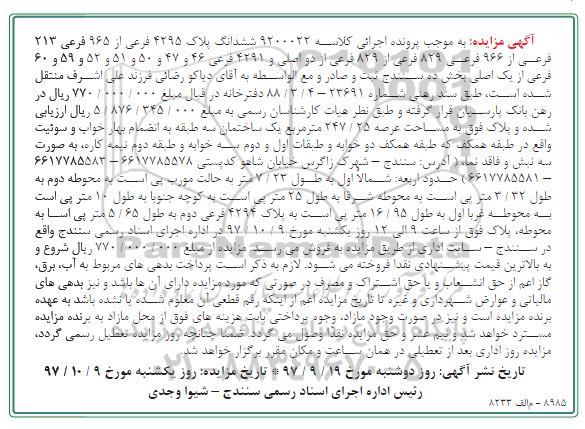 آگهی مزایده: به موجب پرونده اجرائی کلاسه ۹۲۰۰۰۲۲ ششدانگ پلاک ۴۲۹۵ فرعی از ۹۶۵ فرعی ۲۱۳
فرعی از ۹۶۶ فرعی ۸۲۹ فرعی از ۸۲۹ فرعی از دو اصلی و ۴۲۹۱ فرعی ۴۶ و ۴۷ و ۵۰ و ۵۱ و ۵۲ و ۵۹ و ۶۰
فرعی از یک اصلی بخش ده سنندج ثبت و صادر و مع الواسطه به آقای دیاکو رضائی فرزند علی اشرف منتقل
شده است، طبق سند رهنی شماره ۲۳۶۹۱ – ۸۸/۳/۴ دفترخانه در قبال مبلغ ۷۷۰/۰۰۰/۰۰۰ ریال در
رهن بانک پارسیان قرار گرفته و طبق نظر هیات کارشناسان رسمی به مبلغ ۵/۸۷۶/۳۴۵/۰۰۰ ریال ارزیابی
شده و پلاک فوق به مساحت عرصه ۲۴۷/۲۵ مترمربع یک ساختمان سه طبقه به انضمام بهار خواب و سوئیت
واقع در طبقه همکف که طبقه همکف دو خوابه و طبقات اول و دوم سه خوابه و طبقه دوم نیمه کاره، به صورت
سه نبش و فاقد نما، ( آدرس: سنندج – شهرک زاگرس خیابان شاهو کدپستی ۶۶۱۷۷۸۵۵۷۸ – ۶۶۱۷۷۸۵۵۸۳
– ۶۶۱۷۷۸۵۵۸۱) حدود اربعه: شمالاً اول به طول ۷/۲۳ متر به حالت مورب پی است به محوطه دوم به
طول ۳/۳۲ متر پی است به محوطه شرقا به طول ۲۵ متر پی است به کوچه جنوبا به طول ۱۰ متر پی است
به محوطه غربا اول به طول ۱۶/۹۵ متر پی است به پلاک ۴۲۹۴ فرعی دوم به طول ۵/۶۵ متر پی است به
محوطه، پلاک فوق از ساعت ۹ الی ۱۲ روز یکشنبه مورخ ۹۷/۱۰/۹ در اداره اجرای اسناد رسمی سنندج واقع
در سنندج – سایت اداری از طریق مزایده به فروش می رسد. مزایده از مبلغ ۷۷۰/۰۰۰/۰۰۰ ریال شروع و
به بالاترین قیمت پیشنهادی نقدا فروخته می شود. لازم به ذکر است پرداخت بدهی های مربوط به آب، برق،
گاز اعم از حق انشعاب و یا حق اشتراک و مصرف در صورتی که مورد مزایده دارای آن ها باشد و نیز بدهی های
مالیاتی و عوارض شهرداری و غیره تا تاریخ مزایده اعم از اینکه رقم قطعی آن معلوم شده یا نشده باشد به عهده
برنده مزایده است و نیز در صورت وجود مازاد، وجوه پرداختی بابت هزینه های فوق از محل مازاد به برنده مزایده
مسترد خواهد شد و نیم عشر و حق مزایده نقدا وصول می گردد. ضمنا چنانچه روز مزایده تعطیل رسمی گردد،
مزایده روز اداری بعد از تعطیلی در همان ساعت و مکان مقرر برگزار خواهد شد.
تاریخ نشر آگهی: روز دوشنبه مورخ ۹۷/۹/۱۹ * تاریخ مزایده: روز یکشنبه مورخ ۹۷/۱۰/۹
رئیس اداره اجرای اسناد رسمی سنندج – شیوا وجدی
۸۹۸۵ – م/الف ۸۲۳۳